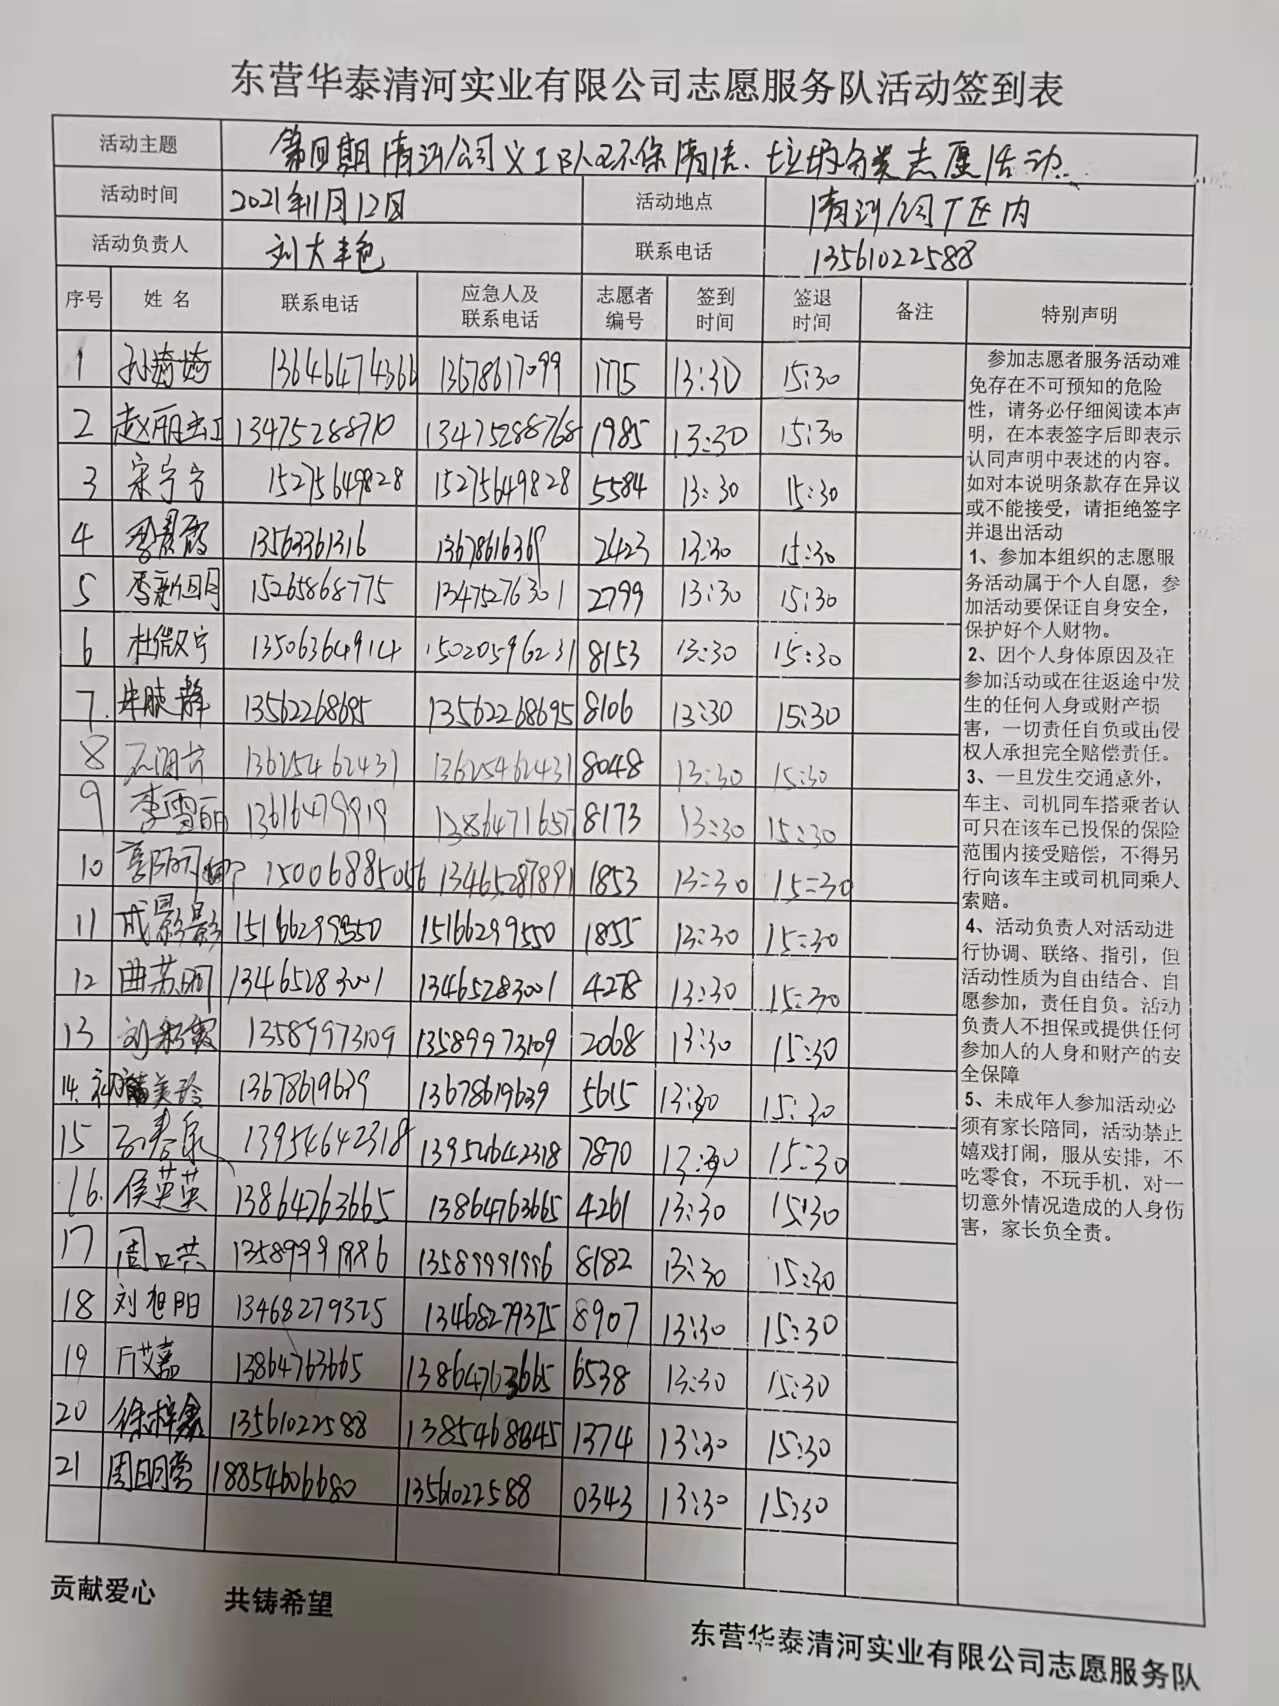 东营华泰清河实业有限公司志愿服务队活动签到表
活动主题 第四期清河公司义工队环保清洁、垃圾分类志愿活动
活动时间 2021年11月12日 活动地点 清河公司厂区内
活动负责人 联系电话 13561022588
序号 姓名 联系电话 应急人及联系电话 志愿者编号 签到时间 签退时间 备注 特别声明
1 孙婷婷 13646474366 13678617099 1775 13:30 15:30
2 13475288710 13475288768 1985 13:30 15:30
3 15275649828 15275649828 5584 13:30 15:30
4 13563361316 13678616369 2423 13:30 15:30
5 李新明 15265868775 13475276301 2799 13:30 15:30
6 杜微宁 13506364914 15020596231 8153 13:30 15:30
7 13562268695 13562268695 8106 13:30 15:30
8 13625462431 13625462431 8048 13:30 15:30
9 李雪丽 13616479919 13864771657 8173 13:30 15:30
10 15006885056 13465287891 1853 13:30 15:30
11 成影影 15166299550 15166299550 1855 13:30 15:30
12 曲苏丽 13465283001 13465283001 4278 13:30 15:30
13 13589973109 13589973109 2068 13:30 15:30
14 13678619639 13678619639 5615 13:30 15:30
15 石春泉 13954642318 13954642318 7870 13:30 15:30
16 侯英英 13864763665 13864763665 4261 13:30 15:30
17 13589991996 8182 13:30 15:30
18 刘旭阳 13468279375 13468279375 8907 13:30 15:30
19 13864763665 13864763665 6538 13:30 15:30
20 徐梓鑫 13561022588 1374 13:30 15:30
21 周明营 18854606680 13561022588 0343 13:30 15:30
参加志愿者服务活动难
免存在不可预知的危险
性，请务必仔细阅读本声
明，在本表签字后即表示
认同声明中表述的内容。
如对本说明条款存在异议
或不能接受，请拒绝签字
并退出活动
1、参加本组织的志愿服
务活动属于个人自愿，参
加活动要保证自身安全，
保护好个人财物。
2、因个人身体原因及在
参加活动或在往返途中发
生的任何人身或财产损
害，一切责任自负或由侵
权人承担完全赔偿责任。
3、一旦发生交通意外，
车主、司机同车搭乘者认
可只在该车已投保的保险
范围内接受赔偿，不得另
行向该车主或司机同乘人
索赔。
4、活动负责人对活动进
行协调、联络、指引，但
活动性质为自由结合、自
愿参加，责任自负。活动
负责人不担保或提供任何
参加人的人身和财产的安
全保障
5、未成年人参加活动必
须有家长陪同，活动禁止
嬉戏打闹，服从安排，不
吃零食，不玩手机，对一
切意外情况造成的人身伤
害，家长负全责。
贡献爱心 共铸希望
东营华泰清河实业有限公司志愿服务队